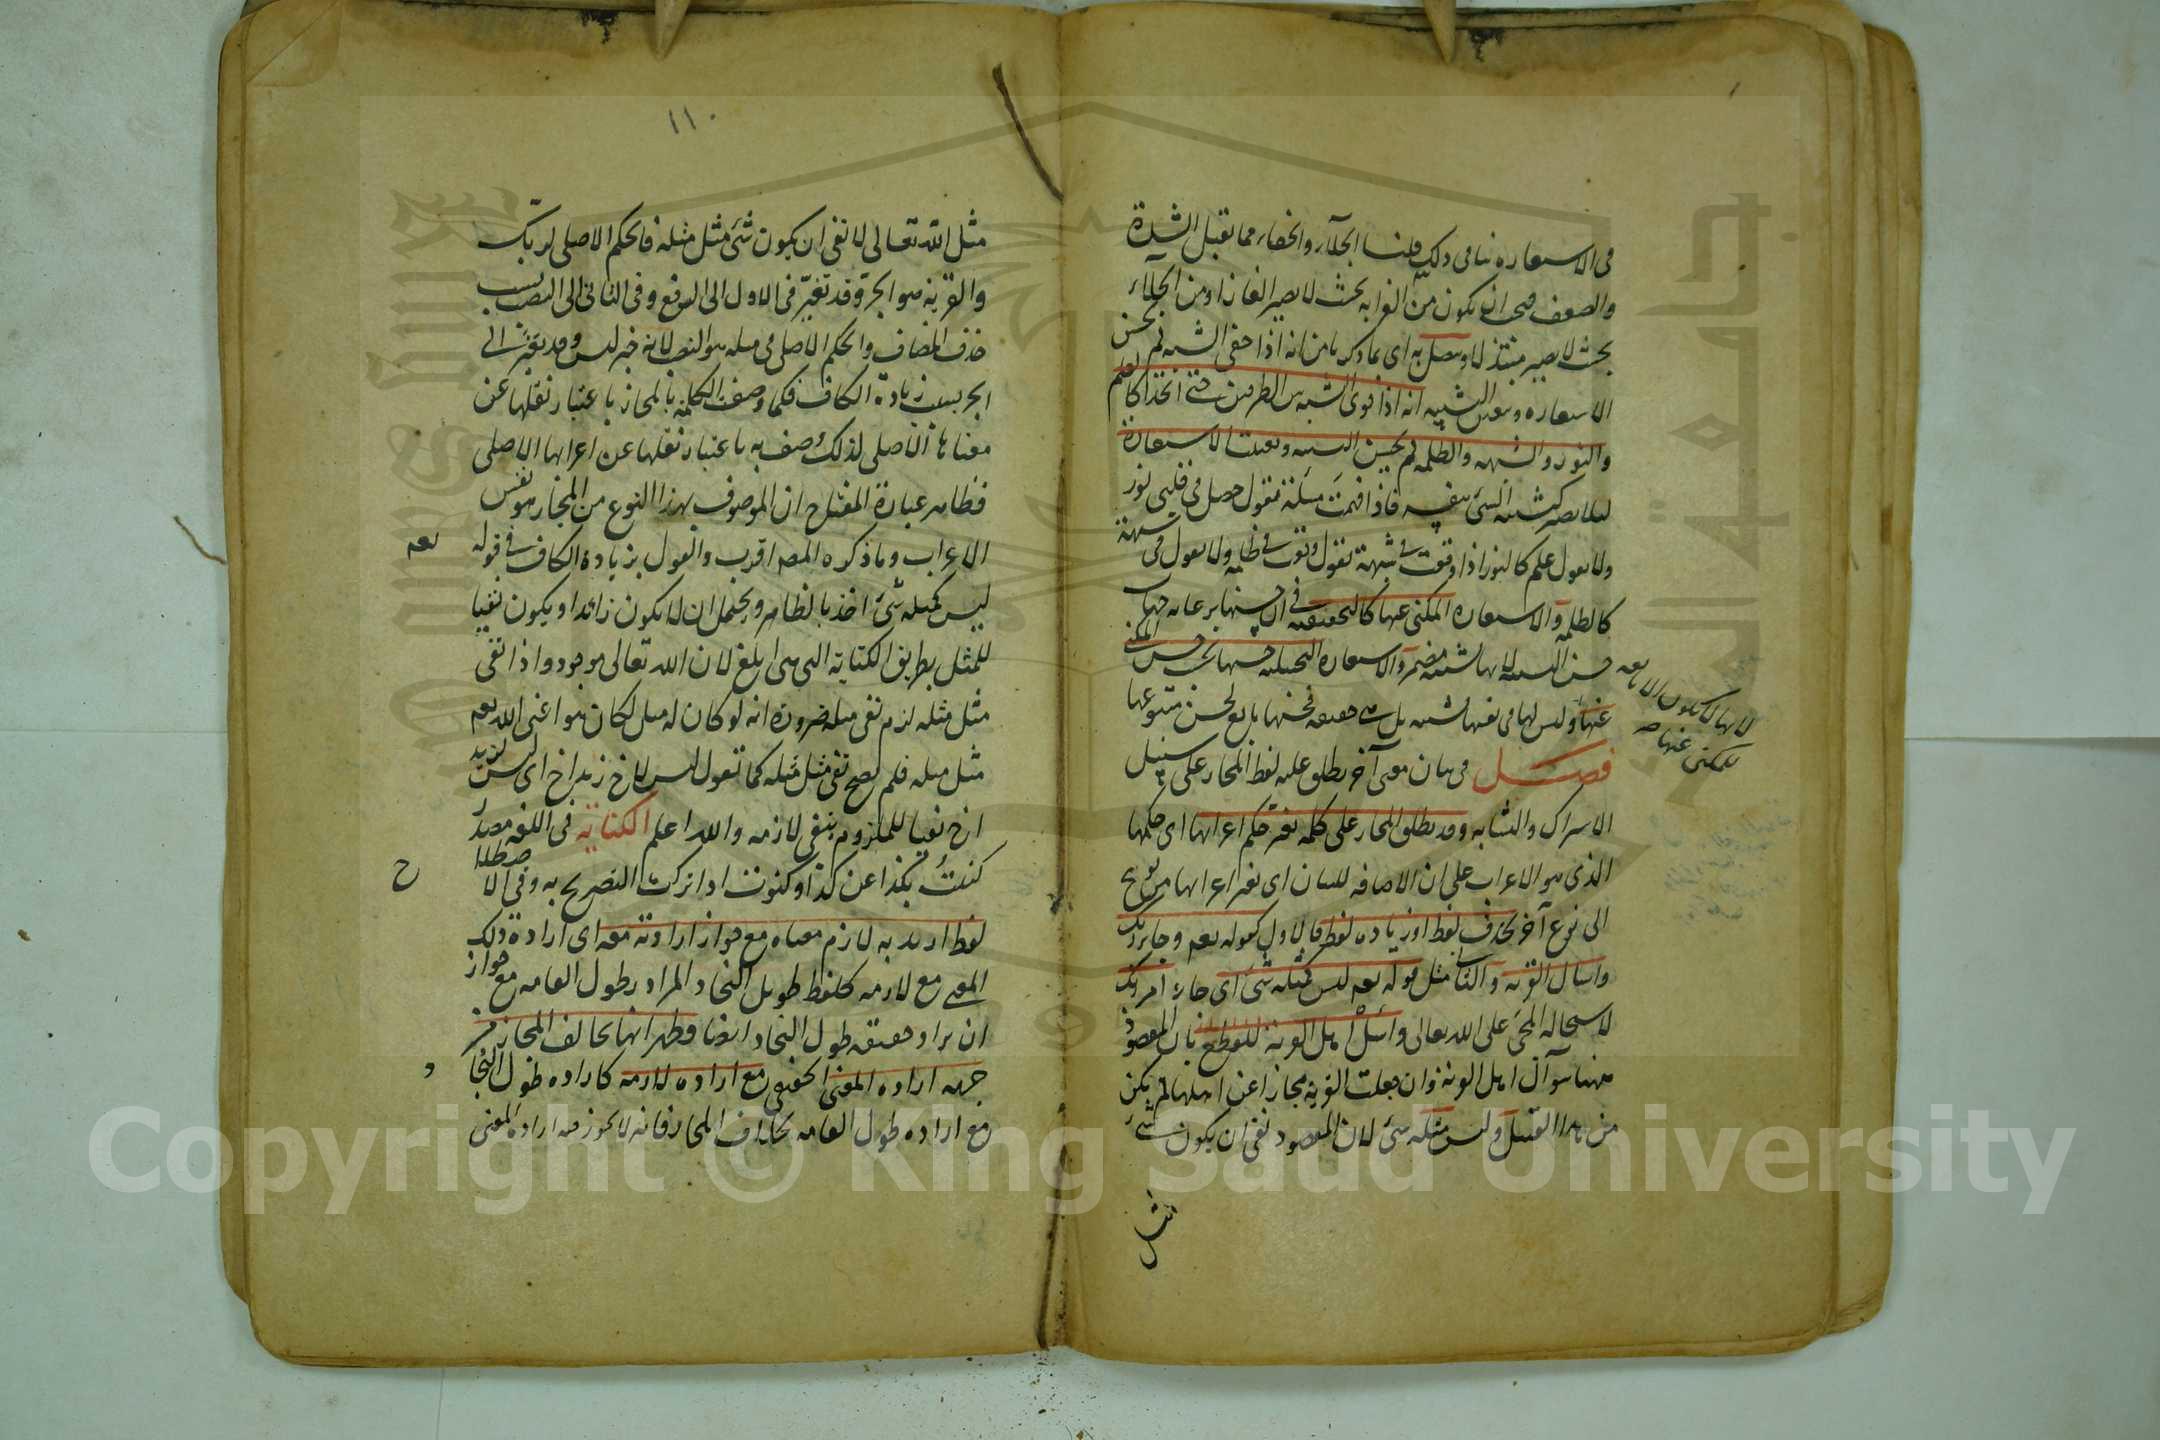 في الاستعارة ينافي ذلك قلنا الجلاء والخفاء مما يقبل الشدة
والضعف فيجب ان يكون من الغرابة بحيث لا يصير الغازا ومن الجلاء
بحيث لا يصير مبتذلا ويتصل به اي بما ذكرنا من انه اذا خفى الشبه لم تحسن
الاستعارة ويتعين التشبيه انه اذا قوى الشبه بين الطرفين حتى اتحدا كالعلم
والنور والشبهة والظلمة لم يحسن التشبيه وتعينت الاستعارة
لئلا يصير كتشبيه الشئ بنفسه فاذا فهمت مسئلة تقول حصل في قلبي نور
ولا تقول علم كالنور واذا وقعت في شبهة تقول وقعت في ظلمة ولا تقول في شبهة
كالظلمة والاستعارة المكنى عنها كالتحقيقية في ان حسنها برعاية جهات
حسن التشبيه لانها تشبيه مضمر والاستعارة التخييلية حسنها بحسب حسن المكنى
عنها وليس لها في نفسها تشبيه بل هي حقيقة فحسنها تابع لحسن متبوعها
لانها لا تكون الا تابعة
للمكنى عنها صح
فصل في بيان معنى آخر يطلق عليه لفظ المجاز على سبيل
الاشتراك والتشابه وقد يطلق المجاز على كلمة تغير حكم اعرابها اي حكمها
الذي هو الاعراب على ان الاضافة للبيان اي تغير اعرابها من نوع
الى نوع آخر بحذف لفظ او زيادة لفظ فالاول كقوله تعم وجاء ربك
واسال القرية والثاني مثل قوله تعم ليس كمثله شئ اي جاء امر ربك
لاستحالة المجئ على الله تعالى واسئل اهل القرية للقطع بان المقصود
ههنا سؤال اهل القرية وان جعلت القرية مجازا عن اهلها لم يكن
من هذا القبيل وليس مثله شئ لان المقصود نفى ان يكون شئ
مثل
١١٠
مثل الله تعالى لا نفى ان يكون شئ مثل مثله فالحكم الاصلى لربك
والقرية هو الجر وقد تغير في الاول الى الرفع وفي الثاني الى النصب بسبب
حذف المضاف والحكم الاصلى في مثله هو النصب لانه خبر ليس وقد تغير الى
الجر بسبب زيادة الكاف فكما وصفت الكلمة بالمجاز باعتبار نقلها عن
معناها الاصلى لذلك وصف به باعتبار نقلها عن اعرابها الاصلى
فظاهر عبارة المفتاح ان الموصوف بهذا النوع من المجاز هو نفس
الاعراب وما ذكره المصـ اقرب والقول بزيادة الكاف في قوله
تعم
ليس كمثله شئ اخذ بالظاهر ويحتمل ان لا يكون زائدا ويكون نفيا
للمثل بطريق الكناية التي هي ابلغ لان الله تعالى موجود واذا نفى
مثل مثله لزم نفى مثله ضرورة انه لو كان له مثل لكان هو اعني الله تعم
مثل مثله فلم يصح نفى مثل مثله كما تقول ليس لاخ زيد اخ اي ليس لزيد
اخ نفيا للملزوم بنفى لازمه والله اعلم الكناية في اللغة مصدر
كنيت بكذا عن كذا وكنوت اذا تركت التصريح به وفي الاصطلا
ح
لفظ اريد به لازم معناه مع جواز ارادته معه اي ارادة ذلك
المعنى مع لازمه كلفظ طويل النجاد المراد به طول القامة مع جواز
ان يراد حقيقة طول النجاد ايضا فظهر انها تخالف المجاز من
جهة ارادة المعنى الحقيقي مع ارادة لازمه كارادة طول النجا
د
مع ارادة طول القامة بخلاف المجاز فانه لا يجوز فيه ارادة المعنى
Copyright © King Saud University